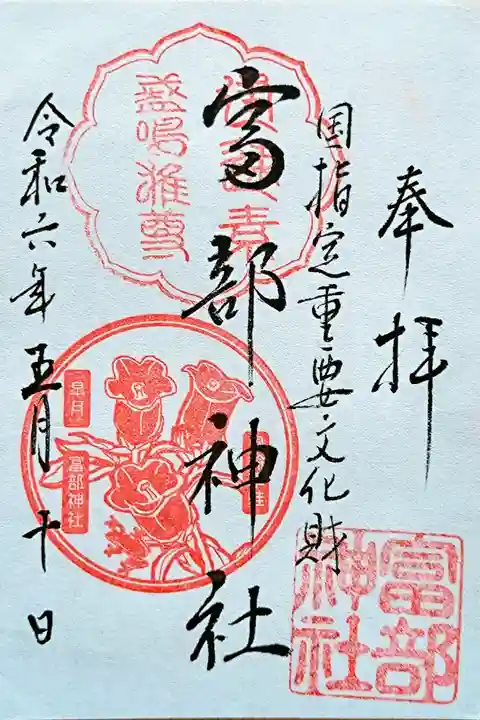 奉拝
国指定重要文化財
富部神社
令和六年五月十日
盛鳴雅尊
皐月
富部神社
富部神社